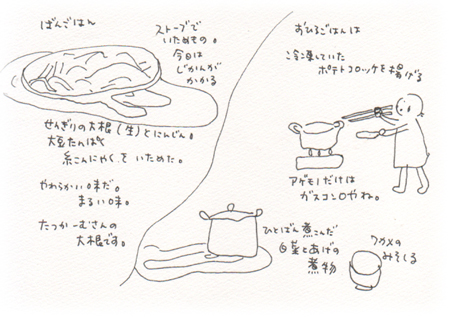 ばんごはん
ストーブで
いためもの。
今日は
じかんが
かかる
せんぎりの大根(生)とにんじん。
大豆たんぱく
糸こんにゃく をいためた。
やわらかい味だ。
まるい味。
たっかーむさんの
大根です。
おひるごはんは
冷凍していた
ポテトコロッケを揚げる
アゲモノだけは
ガスコンロやね。
ひとばん煮こんだ
白菜とあげの
煮物
ワカメの
みそしる